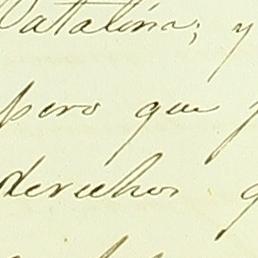 Catalina; y
pero que
derechos